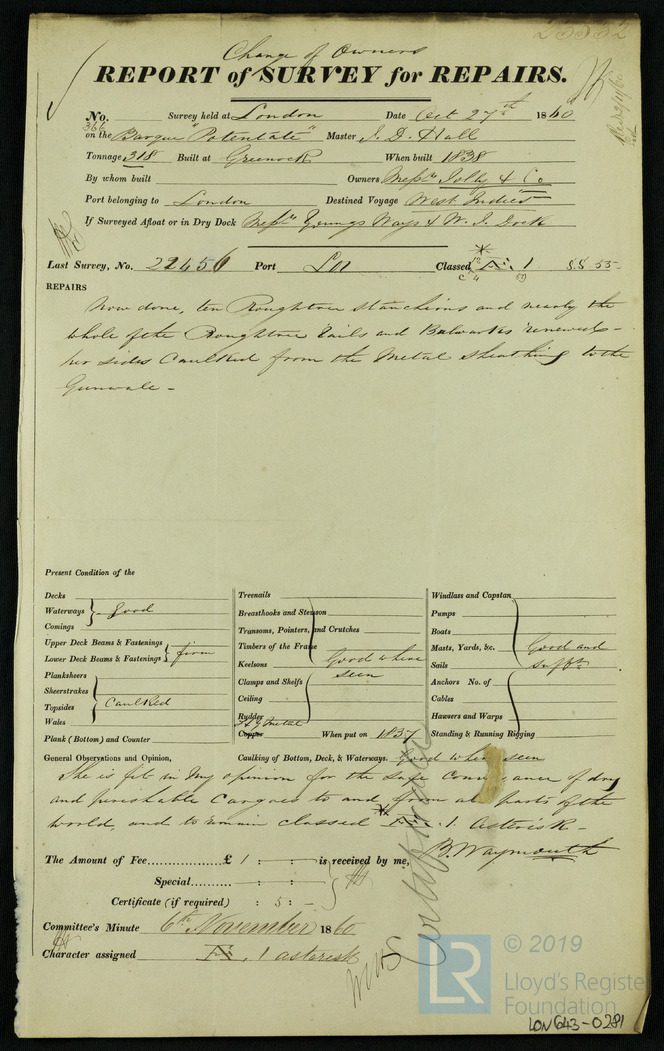 23552
Change of Owners
REPORT of SURVEY for REPAIRS.
No. 366 Survey held at London Date Oct 27th 1860
on the Barque "Potentate" Master J. D. Hall
Tonnage 318 Built at Greenock When built 1838
By whom built Owners Messrs Jolly & Co
Port belonging to London Destined Voyage West Indies
If Surveyed Afloat or in Dry Dock Messrs Youngs Ways & W. I. Dock
Last Survey, No. 22456 Port Lon Classed 1 SS 55
REPAIRS
Now done, ten Roughtree Stanchions and nearly the
whole of the Roughtree rails and Bulwarks renewed -
her sides Caulked from the Metal Sheathing to the
Gunwale -
Present Condition of the
Decks
Waterways good
Comings
Upper Deck Beams & Fastenings
Lower Deck Beams & Fastenings firm
Planksheers
Sheerstrakes
Topsides Caulked
Wales
Plank (Bottom) and Counter
Treenails
Breasthooks and Stemson
Transoms, Pointers, and Crutches
Timbers of the Frame
Keelsons Good where
seen
Clamps and Shelfs
Ceiling
Rudder
Y Metal
Copper When put on 1857
Windlass and Capstan
Pumps
Boats
Masts, Yards, &c. Good and
Sails sufft
Anchors No. of
Cables
Hawsers and Warps
Standing & Running Rigging
General Observations and Opinion, Caulking of Bottom, Deck, & Waterways. Good when seen
She is fit in my opinion for the safe Conveyance of dry
and perishable Cargoes to and from all parts of the
world, and to remain classed 1. Asterisk -
B. Waymouth
The Amount of Fee £ 1 : : is received by me,
Special : :
Certificate (if required) : 5 : -
Certificate
Committee's Minute 6th November 1860
Character assigned 1 asterisk
LR © 2019
Lloyd's Register
Foundation
LON643-0281